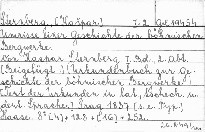 Sternberg, (Kašpar) T. 2 Gd 19454
Umrisse einer Geschichte der böhmischen
Bergwerke.
Von Kaspar Sternberg I. Bd. 2. Abt.
(Beigefügt:) Urkundenbuch zur Ge-
schichte der böhmischen Bergwerke
(Text der Urkunden in lat., tschech. u.
deut. Sprache) Prag 1837 (s. e. Typ.)
8° (4) + 128 + (16) + 252.